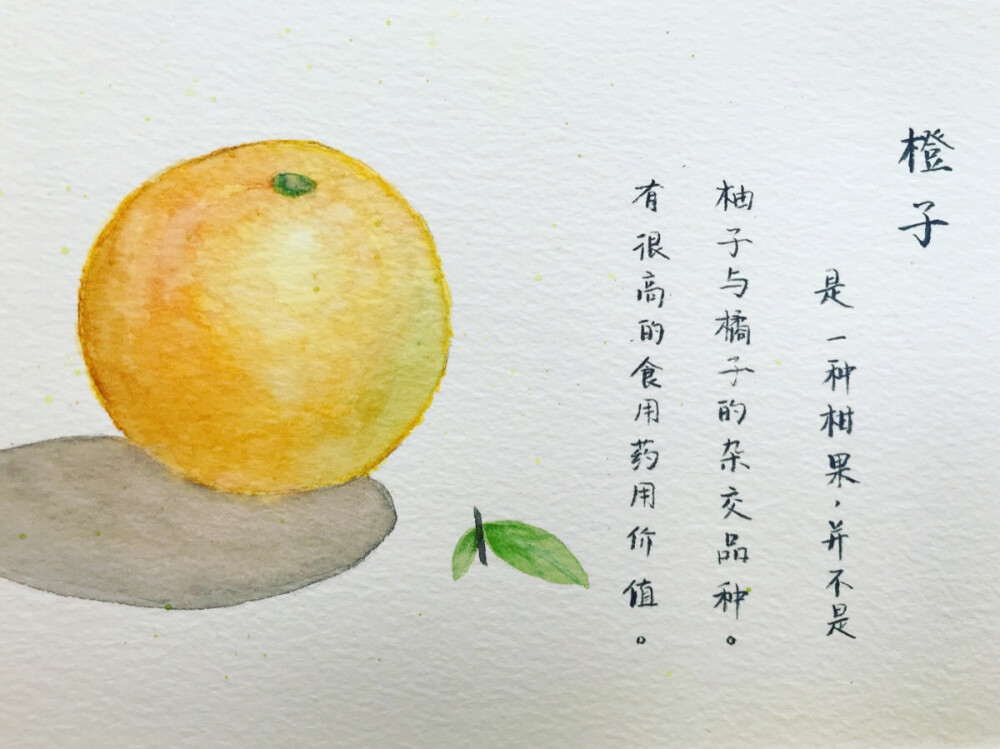 橙子
是一种柑果，并不是
柚子与橘子的杂交品种。
有很高的食用药用价值。